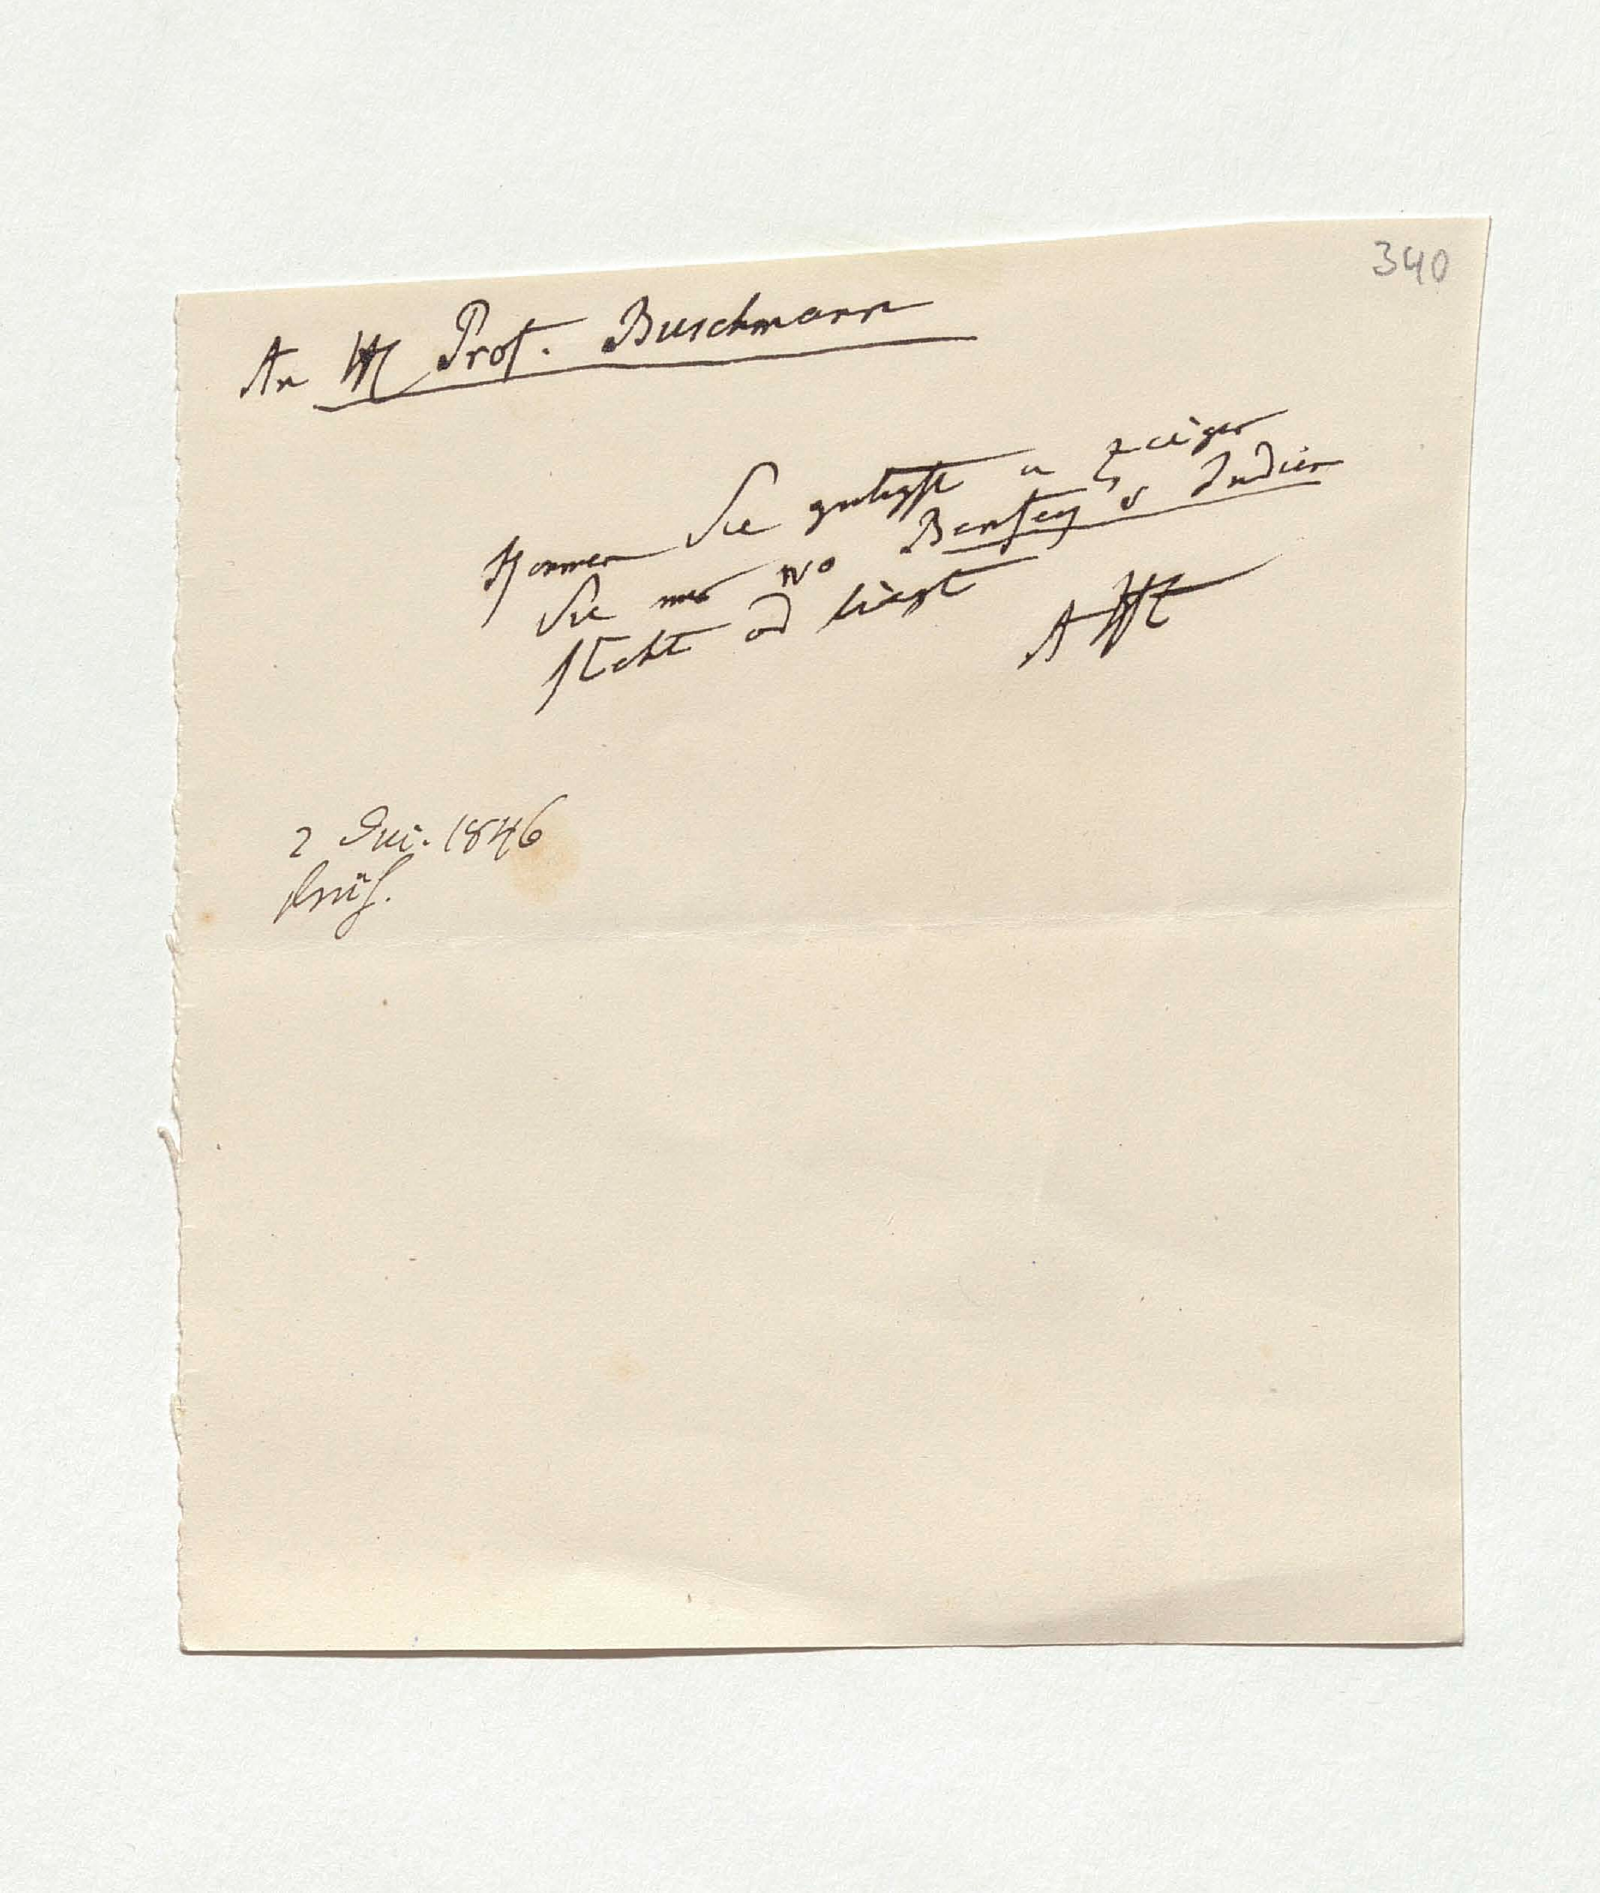 340
An H Prof. Buschmann
Kommen Sie gütigst u zeigen
Sie mir wo Benfey's Indien
steht od liegt
AHt
2 Jui. 1846
früh.